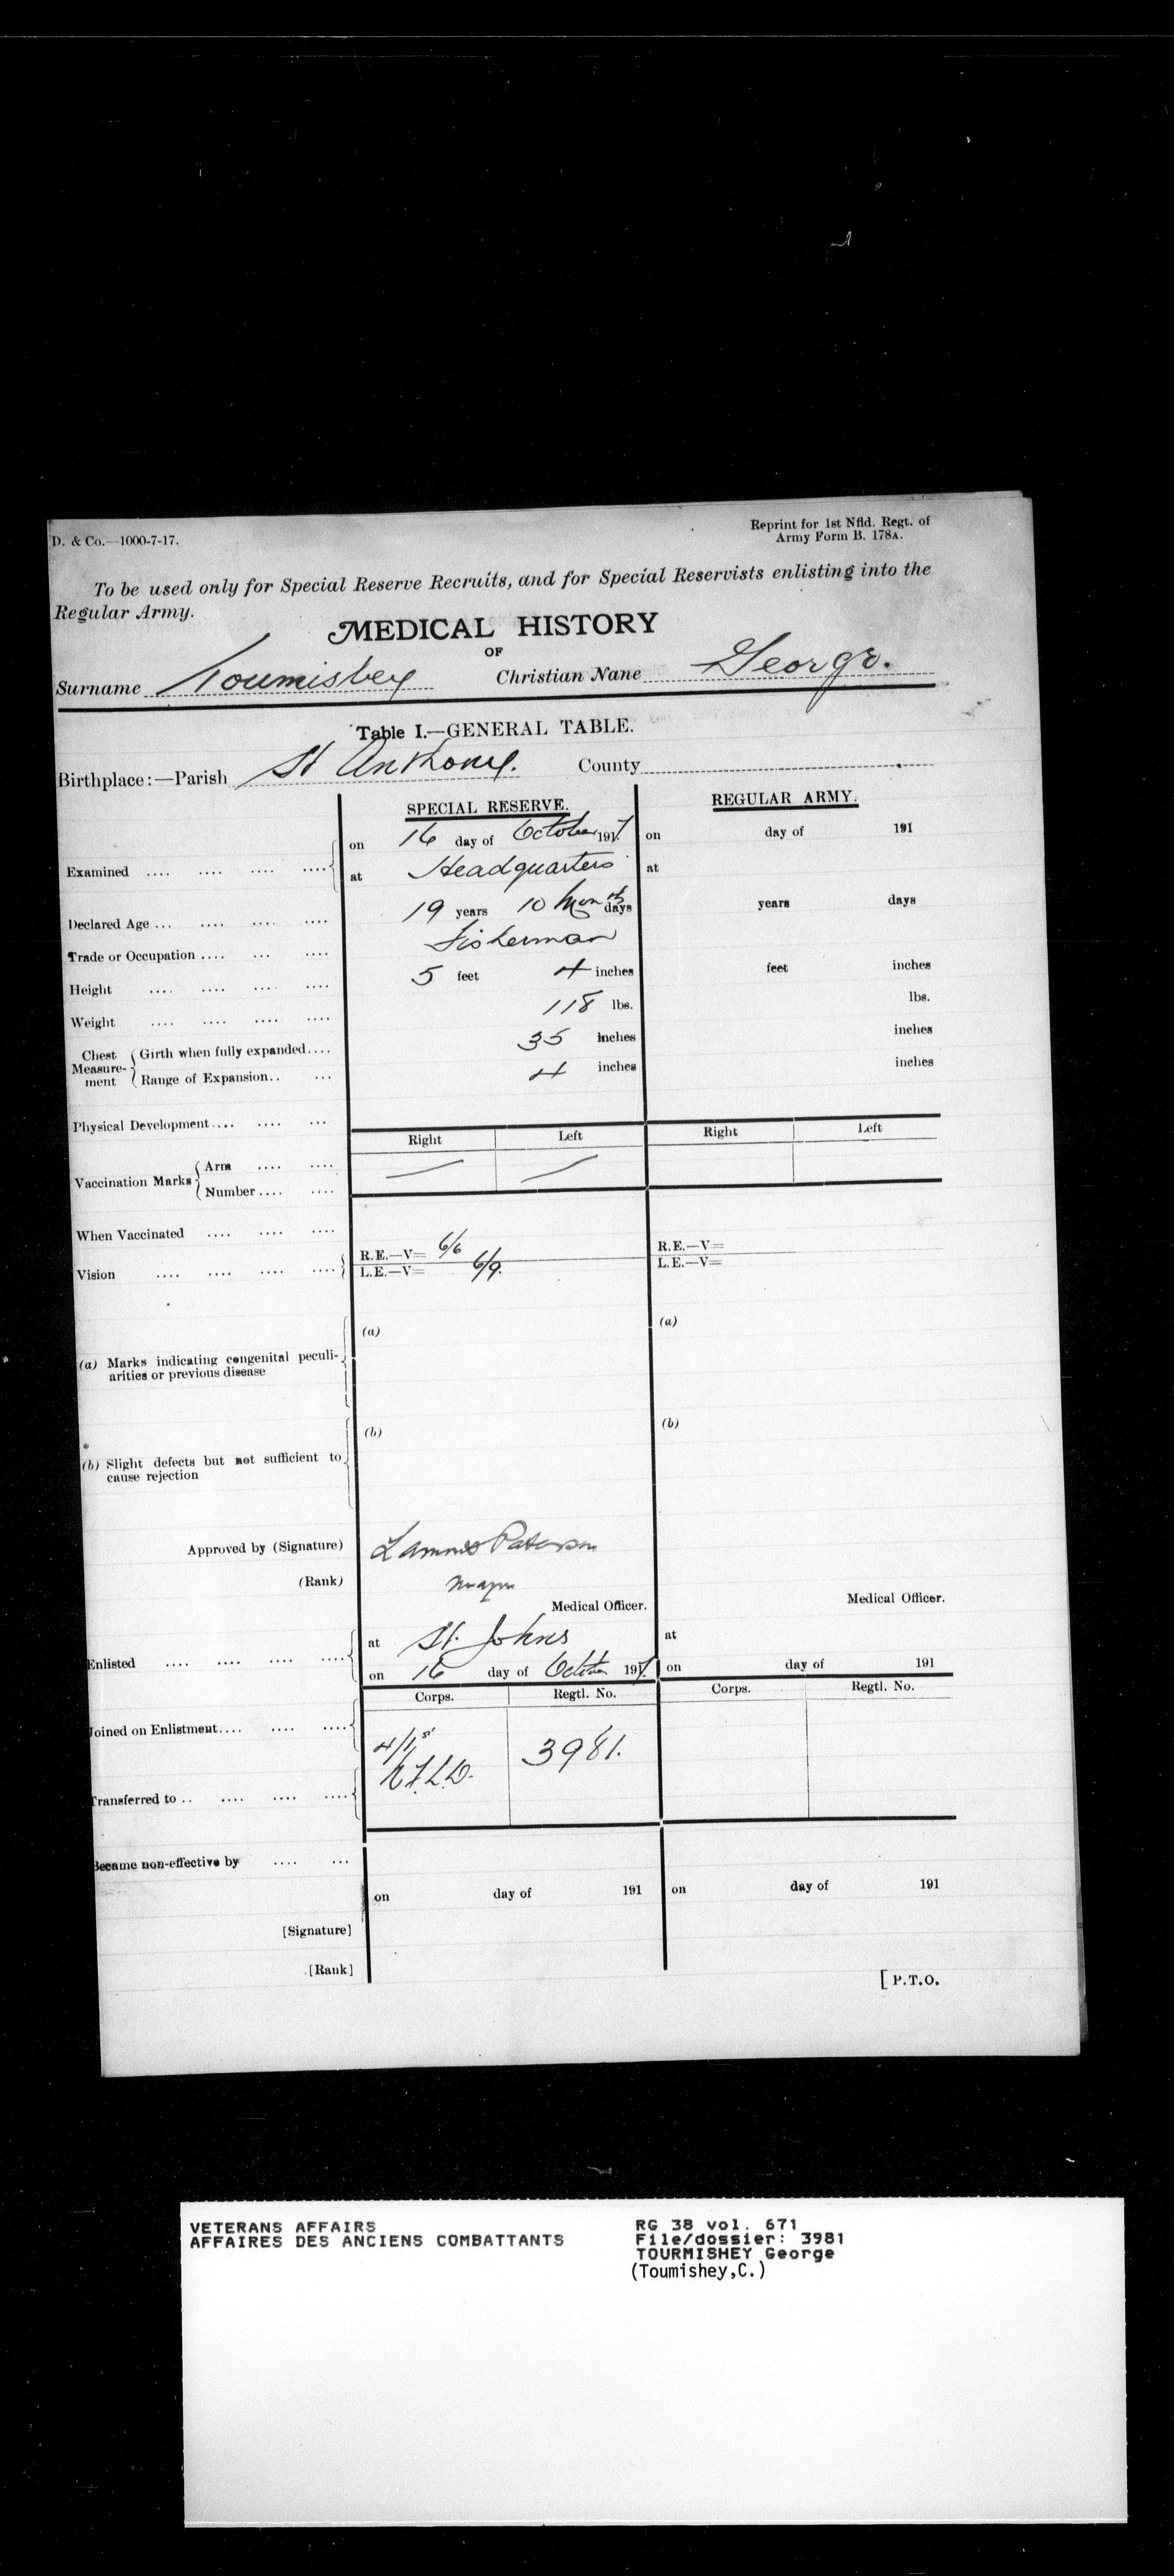 D. & Co.—1000-7-17.
Reprint for 1st Nfld. Regt. of
Army Form B. 178A.
To be used only for Special Reserve Recruits, and for Special Reservists enlisting into the
Regular Army.
MEDICAL HISTORY
OF
Surname Toumishey Christian Nane George.
Table I.—GENERAL TABLE.
Birthplace:—Parish St Anthony. County
SPECIAL RESERVE. REGULAR ARMY.
Examined .... .... .... .... on 16 day of October 1917 on day of 191
at Headquarters at
Declared Age ... .... .... .... 19 years 10 Months days years days
Trade or Occupation .... ... .... Fisherman
Height .... .... .... .... 5 feet 4 inches feet inches
Weight .... .... .... .... 118 lbs. lbs.
Chest Measure-ment Girth when fully expanded.... 35 inches inches
Range of Expansion.. ... 4 inches inches
Physical Development.... .... ...
Right Left Right Left
Vaccination Marks Arm .... .... — —
Number .... ....
When Vaccinated .... .... ....
Vision .... .... .... .... R.E.—V= 6/6 R.E.—V=
L.E.—V= 6/9. L.E.—V=
(a) Marks indicating congenital peculi-
arities or previous disease
(a) (a)
(b) Slight defects but not sufficient to
cause rejection
(b) (b)
Approved by (Signature) Paterson
(Rank) Major
Medical Officer. Medical Officer.
Enlisted .... .... .... .... at St. Johns at
on 16 day of October 1917. on day of 191
Corps. Regtl. No. Corps. Regtl. No.
Joined on Enlistment.... .... .... 1st 3981.
NFLD.
Transferred to .. .... .... ....
Became non-effective by .... ...
on day of 191 on day of 191
[Signature]
[Rank]
[ P.T.O.
VETERANS AFFAIRS
AFFAIRES DES ANCIENS COMBATTANTS
RG 38 vol. 671
File/dossier: 3981
TOURMISHEY George
(Toumishey,C.)